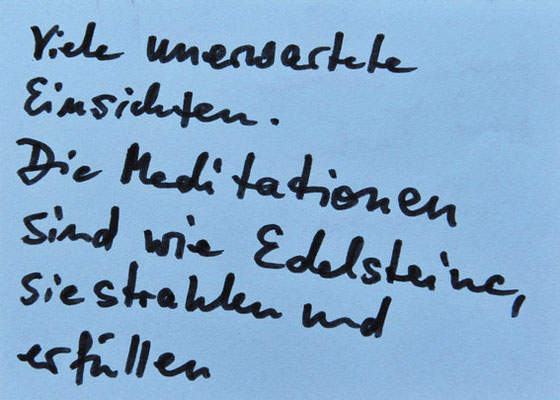 Viele unerwartete
Einsichten.
Die Meditationen
sind wie Edelsteine,
sie strahlen und
erfüllen